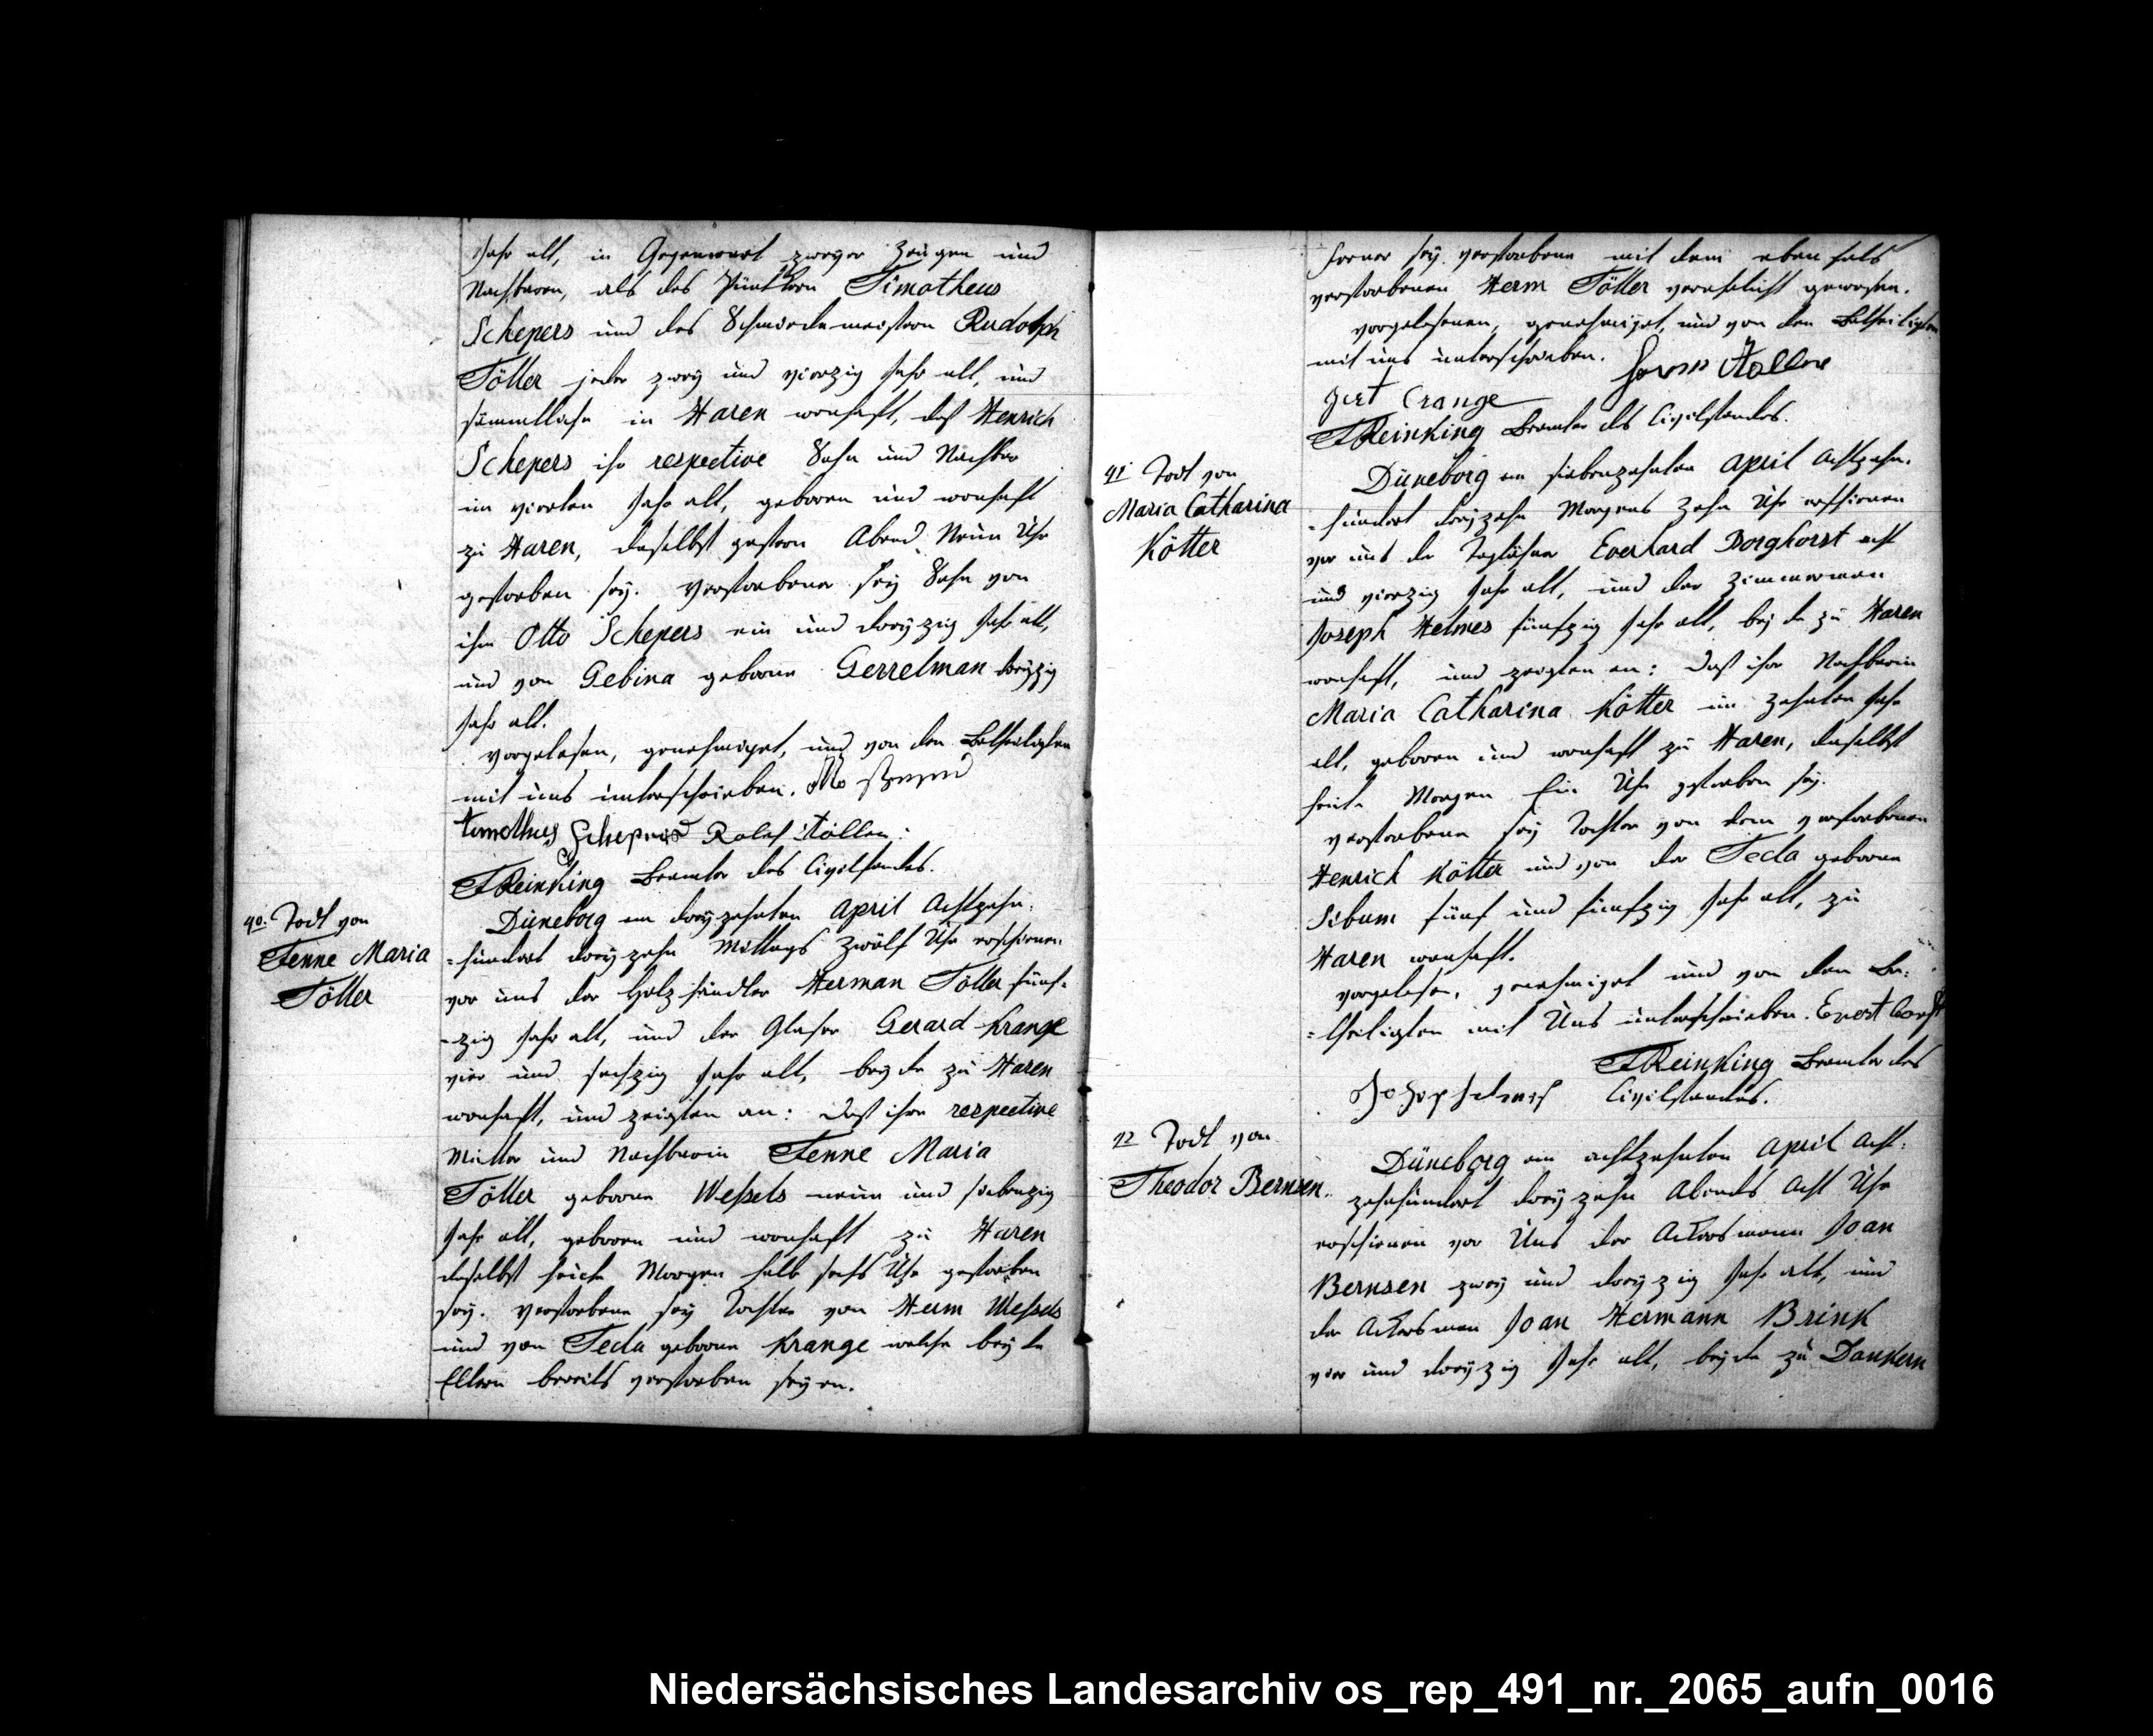 Jahr alt, in Gegenwart zweyer Zeugen und
Nachbaren, als des Timotheus
Schepers und des Schmiedemeistern Rudolph
Töller jeder zwey und vierzig Jahr alt, und
sämmtliche in Haren wonhaft, daß Henrich
Schepers ihr respective Sohn und Nachbar
im vierten Jahr alt, geboren und wonhaft
zu Haren, daselbst gestern Abend Neun Uhr
gestorben sey. Verstorbener sey Sohn von
ihm Otto Schepers ein und dreyzig Jahr alt,
und von Gebina geborne Gerrelman dreyzig
Jahr alt.
vorgelesen, genehmiget, und von den Betheiligten
mit uns unterschrieben. Otto
timothus Schepers Rolef Töllen
Reinking Beamter des Civilstandes.
40. Todt von
Fenne Maria
Töller
Düneborg am dreyzehnten April Achtzehn-
-hundert dreyzehn Mittags zwölf Uhr erschienen
vor uns der Holzhändler Herman Töller fünf-
-zig Jahr alt, und der Glaser Gerard Krange
vier und sechzig Jahr alt, beyde zu Haren
wonhaft, und zeigten an: daß ihre respective
Mutter und Nachbarin Fenne Maria
Töller geborne Weßels neun und siebenzig
Jahr alt, geboren und wonhaft zu Haren
daselbst heute Morgen halb sechs Uhr gestorben
sey. Verstorbene sey Tochter von Herm Weßels
und von Tecla geborne Krange welche beyde
Eltern bereits verstorben seyen.
Ferner sey verstorbene mit dem eben fals
verstorbenen Herm Töller verehelicht gewesen.
vorgelesenen, genehmiget, und von den Betheiligten
mit uns unterschrieben. Herm Töller
gert Crange
Reinking Beamter des Civilstandes.
41 Todt von
Maria Catharina
Kötter
Düneborg am siebenzehnten April Achtzehn-
-hundert dreyzehn Morgens Zehn Uhr erschienen
vor uns der Taglöhner Everhard Borghorst acht
und vierzig Jahr alt, und der Zimmerman
Joseph Helmes fünfzig Jahr alt, beyde zu Haren
wonhaft, und zeigten an: daß ihre Nachbarin
Maria Catharina Kötter im Zehnten Jahr
alt, geboren und wonhaft zu Haren, daselbst
heute Morgen Ein Uhr gestorben sey.
verstorbene sey Tochter von dem verstorbenen
Henrich Kötter und von der Tecla geborne
Sibum fünf und fünfzig Jahr alt, zu
Haren wonhaft.
vorgelesen, genehmiget und von den Be-
-theiligten mit Uns unterschrieben. Evert
Reinking Beamter des
Civilstandes.
42 Todt von
Theodor Bernsen.
Düneborg am achtzehnten April Acht-
zehnhundert dreyzehn Abends Acht Uhr
erschienen vor Uns der Ackersmann Joan
Bernsen zwey und dreyzig Jahr alt, und
der Ackersman Joan Hermann Brink
vier und dreyzig Jahr alt, beyde zu Dankern
Niedersächsisches Landesarchiv os_rep_491_nr._2065_aufn_0016